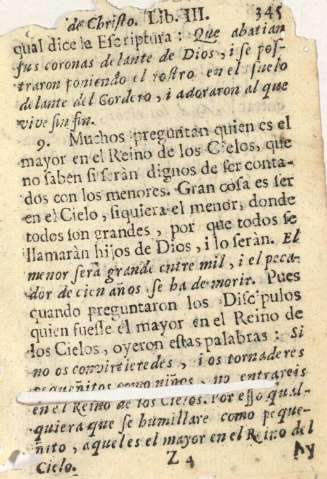 de Christo. Lib. III. 345
qual dice la Escriptura: Que abatian
sus coronas delante de Dios, i se pos-
traron poniendo el rostro en el suelo
delante del Gordero, i adoraron al que
vive sin fin.
9. Muchos preguntan quien es el
mayor en el Reino de los Cielos, que
no saben si seràn dignos de ser conta-
dos con los menores. Gran cosa es ser
en el Cielo, siquiera el menor, donde
todos son grandes, por que todos se
llamaràn hijos de Dios, i lo seràn. El
menor serà grande entre mil, i el peca-
dor de cien años se ha de morir. Pues
cuando preguntaron los Discipulos
quien fuesse el mayor en el Reino de
los Cielos, oyeron estas palabras: Si
no os convirtieredes, i os tornaderes
pequeñitos como niños, no entrareis
en el Reino de los Cielos. Por esso qual-
quiera que se humillare como peque-
ñito, aquel es el mayor en el Reino del
Cielo. Z 4 Ay